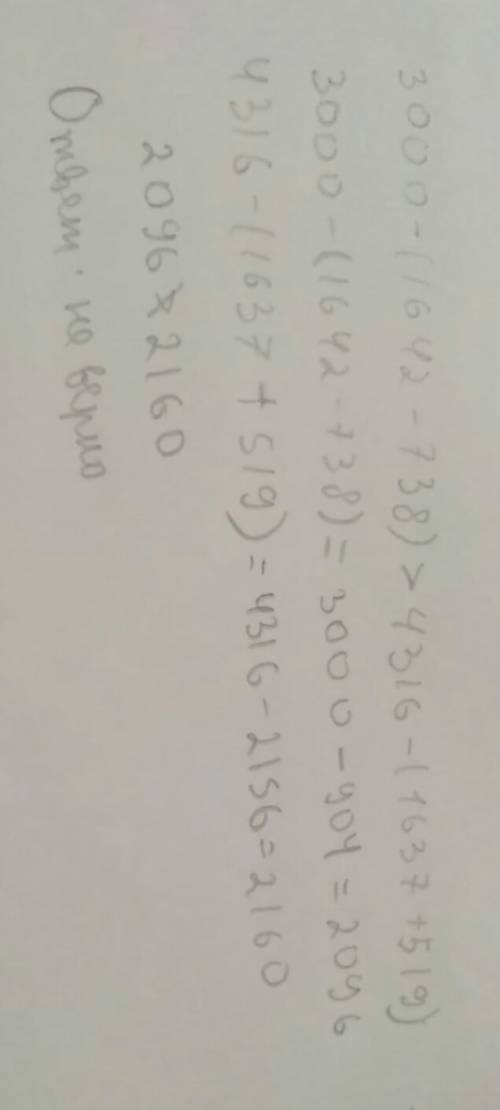 3000-(1642-738)>4316-(1637+519)
3000-(1642-738)=3000-904=2096
4316-(1637+519)=4316-2156=2160
2096>2160
Ответ: не верно